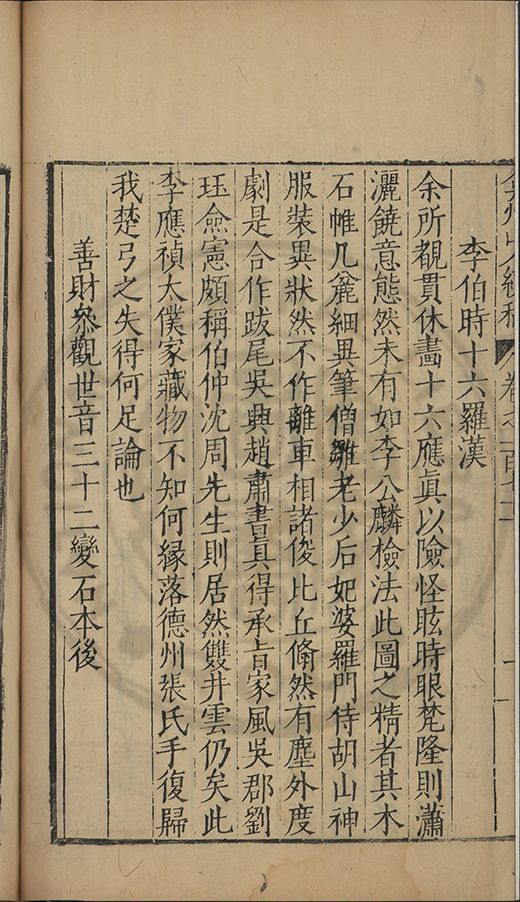 弇州山人續稿 卷之一百七十一
李伯時十六羅漢
余所覩貫休畵十六應眞以險怪眩時眼梵隆則瀟
灑饒意態然未有如李公麟檢法此圖之精者其木
石帷几麄細異筆僧雛老少后妃婆羅門侍胡山神
服裝異狀然不作離車相諸俊比丘翛然有塵外度
劇是合作跋尾吳興趙肅書眞得承旨家風吳郡劉
珏僉憲頗稱伯仲沈周先生則居然雙井雲仍矣此
李應禎太僕家藏物不知何縁落德州張氏手復歸
我楚弓之失得何足論也
善財叅觀世音三十二變石本後